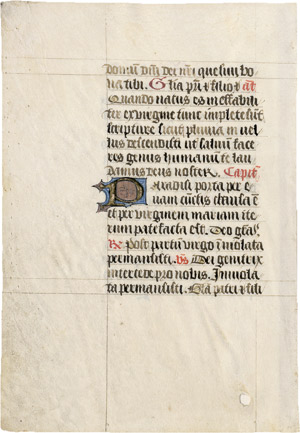 domini dei nri quesiui bo
na tibi. Glia pri & filio & an
Quando natus es ineffabili
ter ex virgine tunc implete sunt
scripture sicut pluuia in uel
lus descendisti ut saluum face
res genus humanum te lau
damus deus noster. Capit
Paradisi porta per e
uam cunctis clausa e
et per virginem mariam ite
rum patefacta est. Deo gras
R post partu virgo inuiolata
permansisti. vs Dei genitrix
intercede pro nobis. Inuiola
ta permansisti. Glia patri & fili